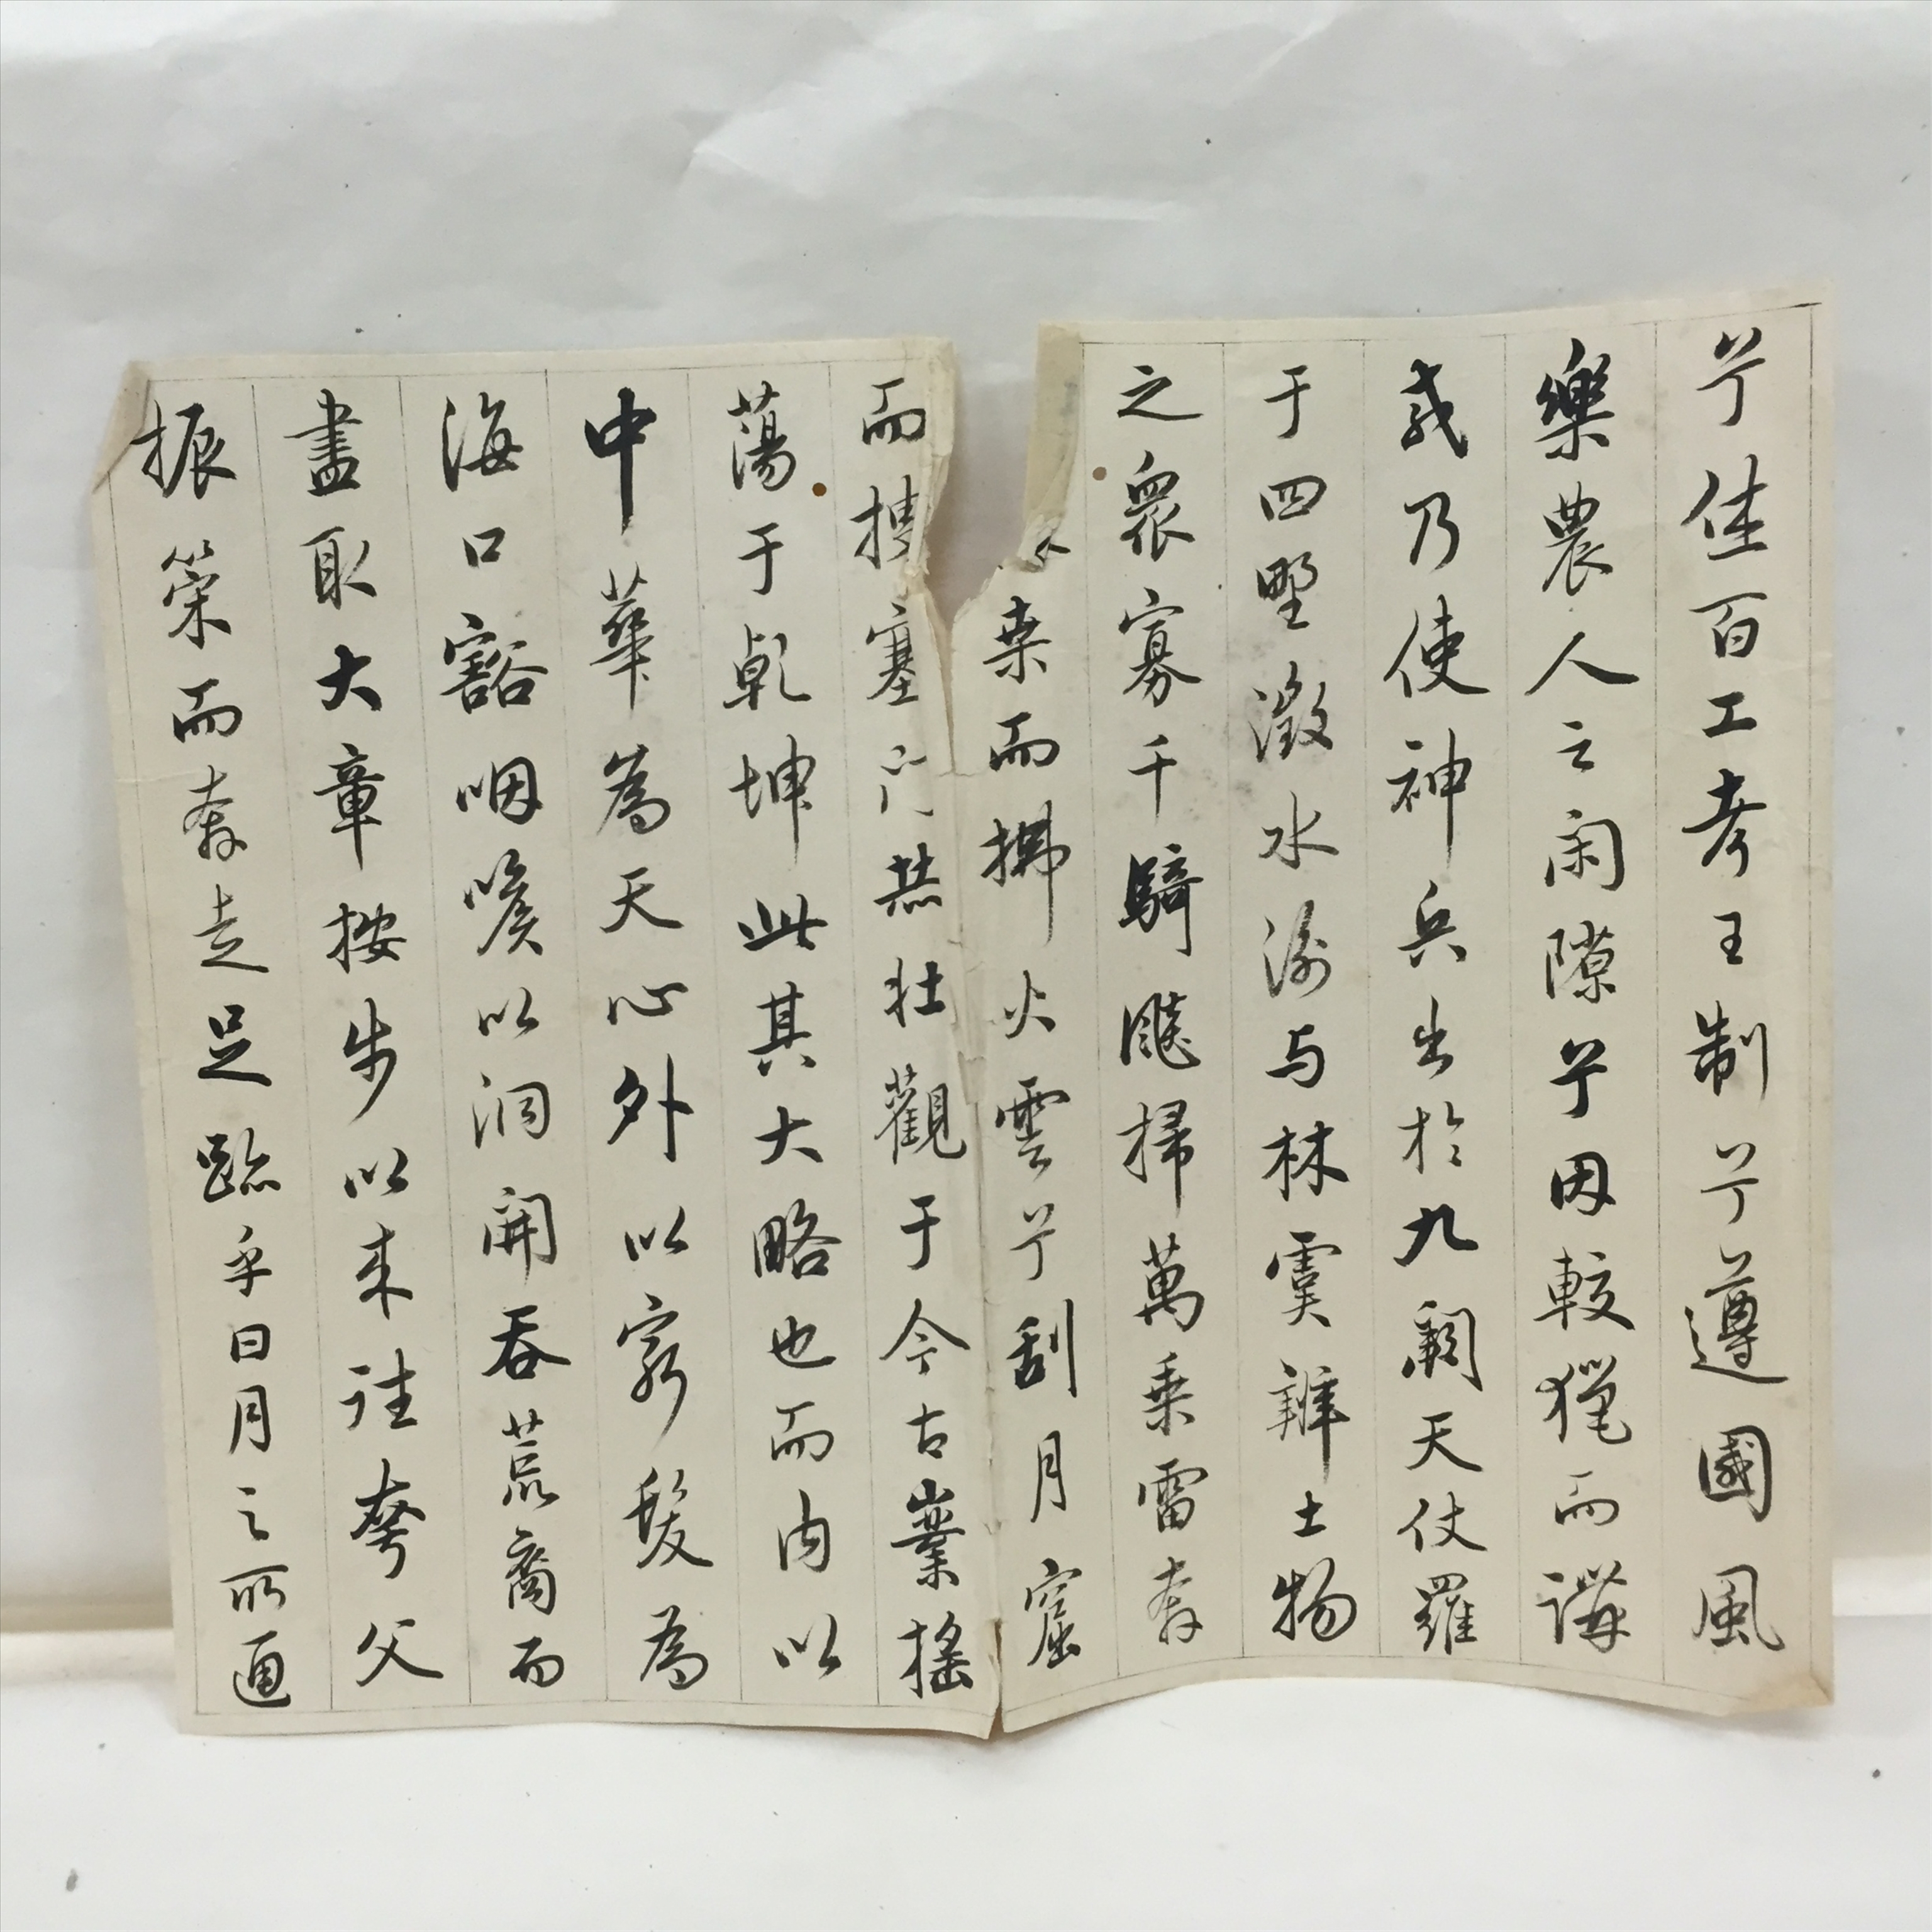 兮佳百工考王制兮遵國風
樂農人之閑隙兮因較獵而講
戎乃使神兵出於九闕天仗羅
于四野澂水衡与林虞辨土物
之衆寡千騎飇掃萬乘雷奔
桒而拂火雲兮刮月窟
而搜塞門赫壯觀于今古嶪搖
蕩于乾坤此其大略也而内以
中華為天心外以窮髮為
海口豁咽喉以洞開吞荒裔而
盡取大章按步以来往夸父
振策而奔走足跡乎日月之所通